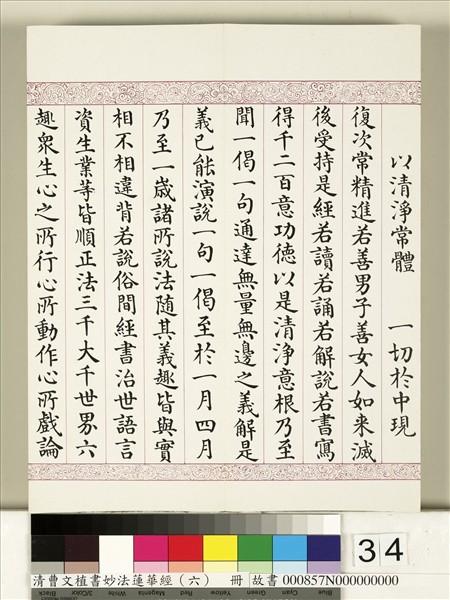 以清淨常體　一切於中現
復次常精進若善男子善女人如来滅
後受持是經若讀若誦若解說若書寫
得千二百意功德以是清淨意根乃至
聞一偈一句通達無量無邊之義解是
義已能演說一句一偈至於一月四月
乃至一歲諸所說法隨其義趣皆與實
相不相違背若說俗間經書治世語言
資生業等皆順正法三千大千世界六
趣衆生心之所行心所動作心所戲論
34
Black 3/Color White Magenta Red Yellow Green Cyan Blue
清曹文植書妙法蓮華經（六）　冊　故書 000857N000000000